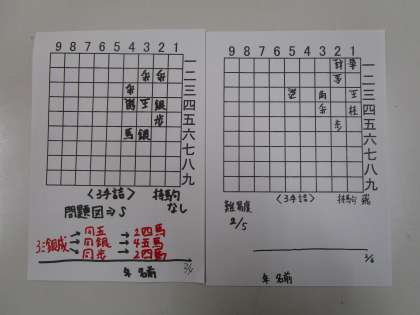 9 8 7 6 5 4 3 2 1
一
二
三
四
五
六
七
八
九
歩 歩
歩
玉 銀
歩
馬 銀
〈3手詰〉 持駒 なし
問題図⇒S
3三銀成
→同玉→2四馬
→同銀→4五馬
→同歩→2四馬
年 名前
9 8 7 6 5 4 3 2 1
一
二
三
四
五
六
七
八
九
歩
歩
〈3手詰〉 持駒 飛
難易度
2/5
年 名前